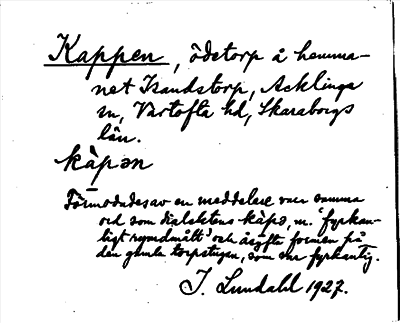 Kappen, ödetorp å hemma-
net Isandstorp, Acklinga
sn, Vartofta hd, Skaraborgs
län.
kàpən
Förmodades av en meddelare vara samma
ord som dialektens kàpə, m. 'fyrkan-
tigt rymdmått' och åsyfta formen på
den gamla torpstugan, som var fyrkantig.
I. Lundahl 1927.